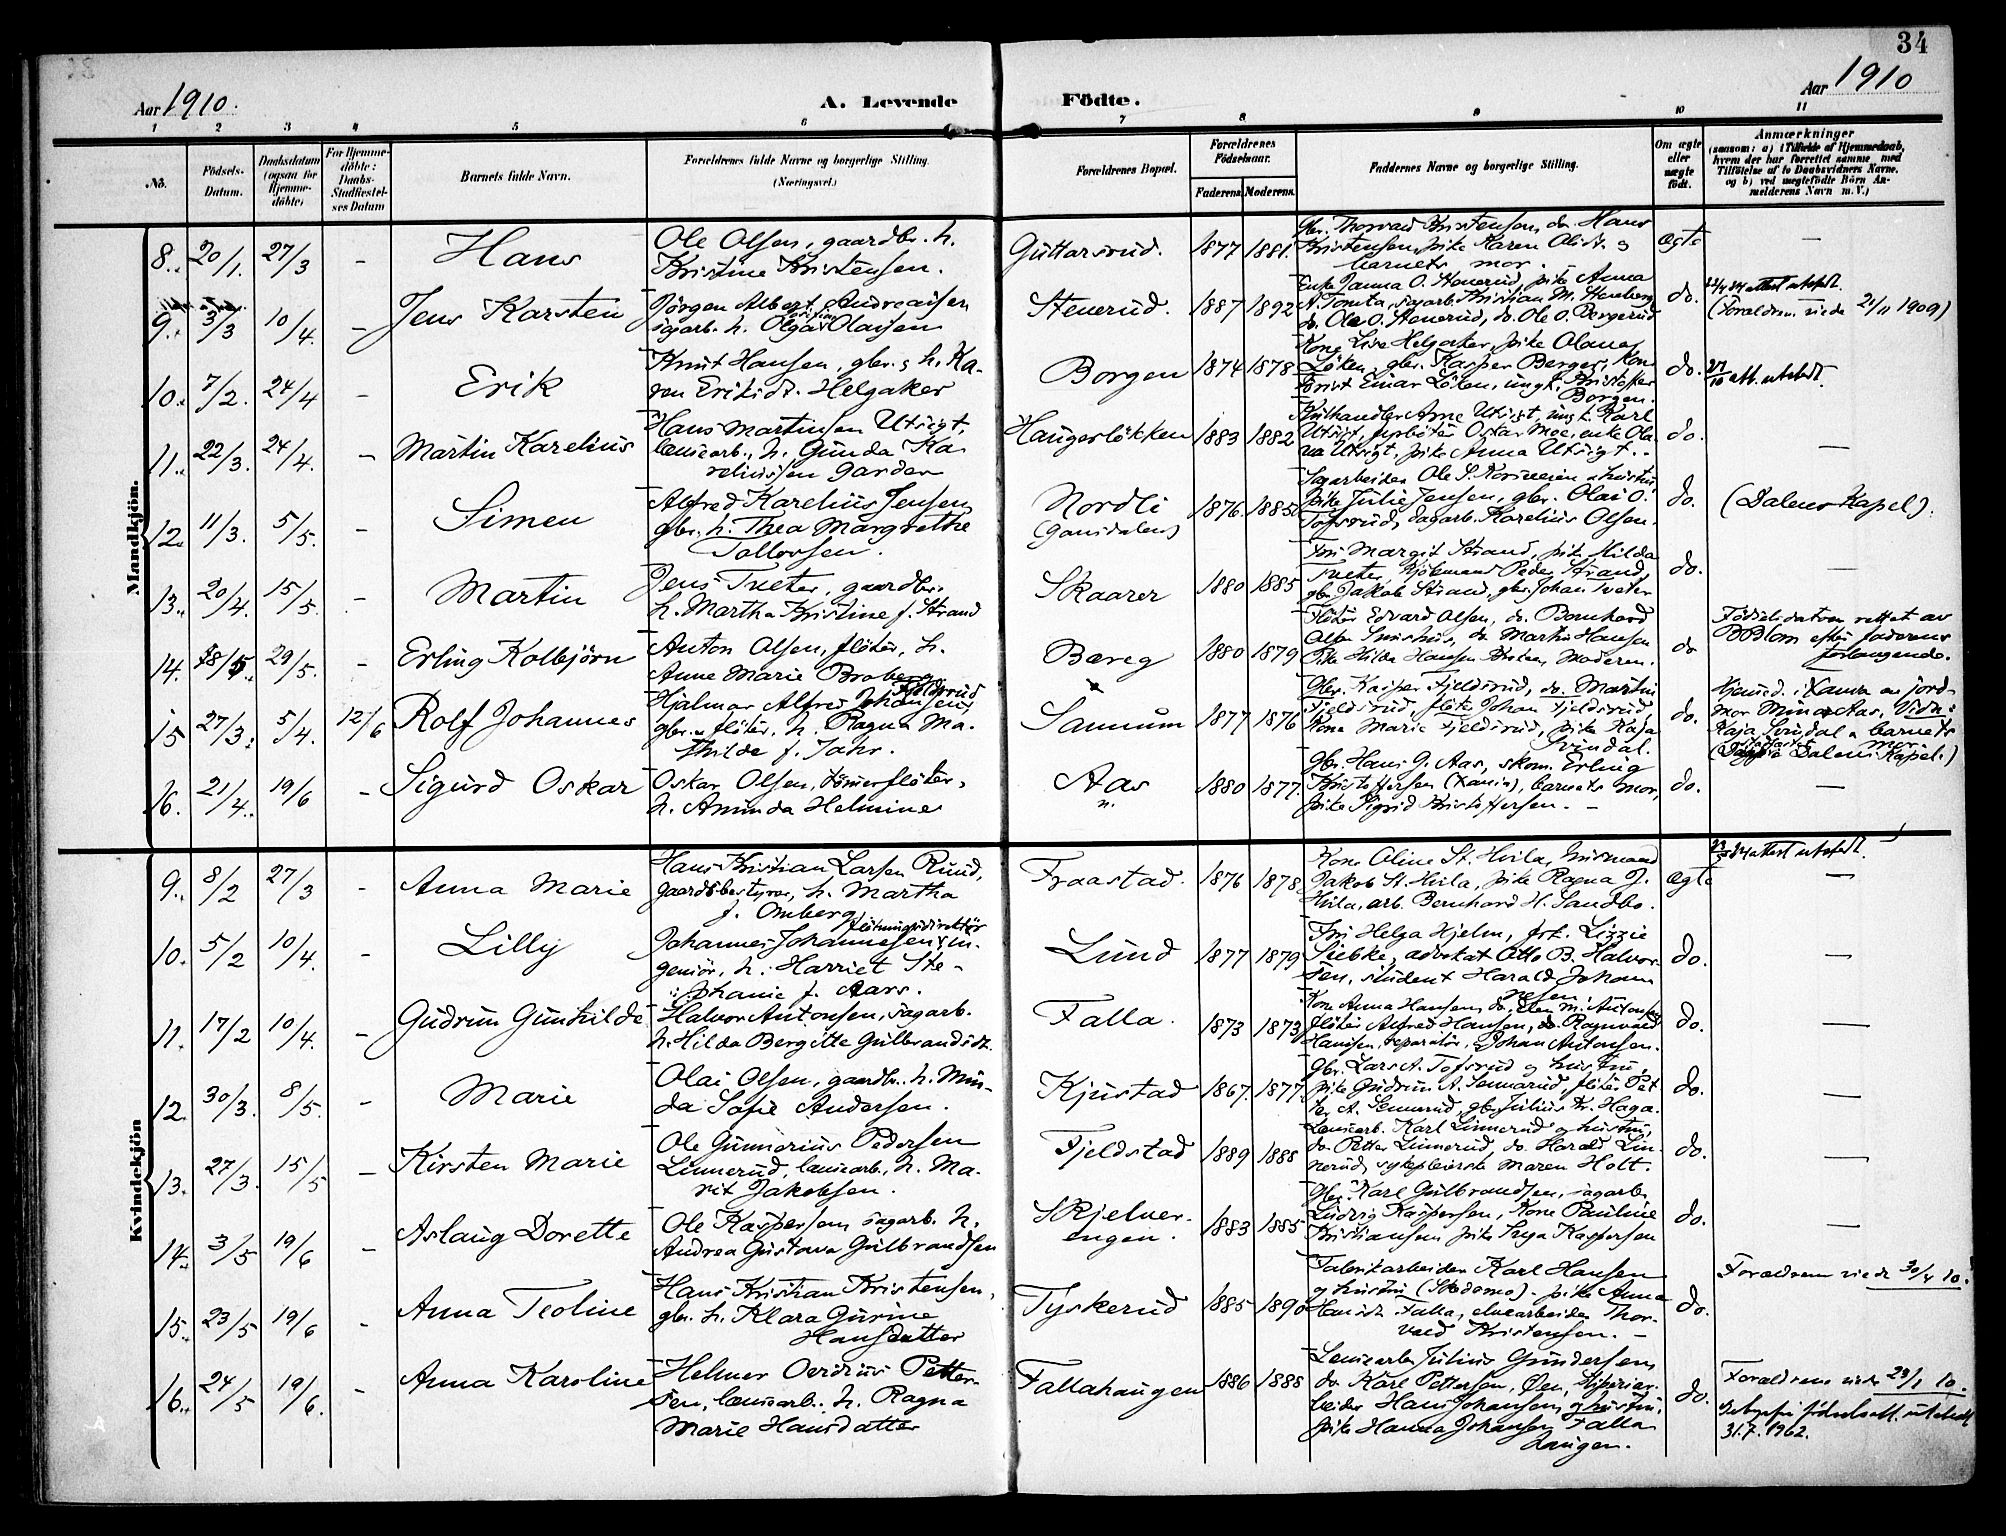 34
Aar 1910.
A. Levende
Födte.
Aar 1910
1 2 3 4 5 6 7 8 9 10 11
No.
Födsels-Datum.
Daabsdatum (ogsaa for Hjemmedöbte)
For Hjemmedöbte: Daabs-Stadfæstelses Datum
Barnets fulde Navn.
Forældrenes fulde Navne og borgerlige Stilling.
(Næringsvei.)
Forældrenes Bopæl.
Forældrenes Födselsaar.
Faderens Moderens.
Faddernes Navne og borgerlige Stilling.
Om ægte eller uægte födt.
Anmærkninger
(saasom: a) i Tilfælde af Hjemmedaab, hvem der har forrettet samme, med Tilföielse af to Daabsvidners Navne, og b) ved uægtefödte Börn Anmelderens Navn m. V.)
Mandkjön.
8. 20/1. 27/3 - Hans
Ole Olsen, gaardbr. h.
Kristine Kristensen.
Guttarsrud. 1877 1881.
Gbr. Thorvald Kristensen, do. Hans
Kristensen, pike Karen Olsdt. og
barnets mor.
ægte —
9. 3/3 10/4. - Jens Karsten
Jörgen Albert Andreassen
sagarb. h. Olga Olausen
Stenerud. 1887 1892
Enke Janna O. Stenerud, pike Anna
A. Tomta, sagarb. Kristian M. Haneborg,
do. Ole O. Stenerud, do. Ole O. Borgerud
do.
attest utstedt.
(Forældrene viede 21/11 1909)
10. 7/2. 24/4 - Erik
Knut Hansen, gbr. & h. Ka-
ren Eriksdt. Helgaker
Borgen 1874 1878
Kone Lise Helgaker, pike Olana
Löken, gbr. Kasper Berger, Kon-
torist Einar Löken, ungk. Kristoffer
Borgen.
do. 27/10 att. utstedt.
11. 22/3. 24/4. - Martin Karelius
Hans Martinsen Utsigt,
leiearb., h. Gunda Ka-
reliussen Garder
Haugerslökken 1883 1882
Arne Utsigt, ungk. Karl
Utsigt, Oskar Moe, enke Ola-
va Utsigt, pike Anna Utsigt.
do. —
12. 11/3. 5/5. - Simen
Alfred Karelius Jensen
gbr. h. Thea Margrethe
Tollefsen.
Nordli
(Gansdalen) 1876. 1885
Sagarbeider Ole S. Kornveien & hustru
pike Julie Jensen, gbr. Olai O.
Tofsrud, sagarb. Karelius Olsen.
do. (Dalens Kapel).
13. 20/4. 15/5. - Martin
Jens Tveter, gaardbr.
h. Martha Kristine f. Strand
Skaarer 1880 1885
Fru Margit Strand, pike Hilda
Tveter, Kjöbmand Peder Strand,
gbr. Jakob Strand, gbr. Johan Tveter
do. —
14. 18/5. 29/5. - Erling Kolbjörn
Anton Olsen, flöter, h.
Anne Marie Broberg
Bareg 1880 1879
Flöter Edvard Olsen, do. Bernhard
Olsen do. Martin Hansen
Pike Hilda Hansen Moderen.
do
Födselsdatoen rettet av
efter faderens
forlangende.
15 27/3. 5/4. 12/6 Rolf Johannes
Hjalmar Alfred Johansen Fjeldsrud
gbr. & flöter, h. Ragna Ma-
thilde f. Jahr.
Sannum 1877 1876
Gbr. Kasper Fjeldsrud, do. Martin
Fjeldsrud, flöter Johan Fjeldsrud
Kone Marie Fjeldsrud, pike Kaja
Svindal.
do.
Hjemmed. i av jord-
mor Mina Aas. Vidn:
Kaja Svindal & barnets
mor
Dalens Kapel.)
16. 21/4. 19/6 - Sigurd Oskar
Oskar Olsen, tömmerflöter,
h. Aminda Helmine
Aas 1880 1877.
Gbr. Hans G. Aas, skom. Erling
Kristoffersen (Fansin), barnets mor,
pike Sigrid Kristoffersen. -
do. —
Kvindekjön
9. 8/2 27/3 - Anna Marie
Hans Kristian Larsen Ruud,
gaardsbestyrer, h. Martha
f. Omberg
Fraastad. 1876 1878
Kone Oline St. Hvila, husmand
Jakob St. Hvila, pike Ragna J.
Hvila, arb. Bernhard H. Sandbo.
ægte
attest utstedt.
—
10. 5/2 10/4. - Lilly
Johannes Johannesen, flötningsdirektör in-
geniör, h. Harriet Ste-
phanie f. Aars.
Lund 1877 1879
Fru Helga Hjelm, frk. Lizzie
Siebke, advokat Otto B. Halvor-
sen, student Harald Johan-
nesen
do. —
11. 17/2 10/4. - Gudrun Gunhilde
Halvor Antonsen, sagarb.
h. Hilda Bergitte Gulbrandsdt.
Falla. 1873 1873
Kone Anna Hansen, do. Ellen M. Antonsen,
flöter Alfred Hansen, do. Ragnvald
Hansen, reparatör Johan Antonsen.
do. —
12. 30/3. 8/5. - Marie
Olai Olsen, gaardbr. h. Min-
da Sofie Andersen.
Kjustad 1867. 1877.
Gbr. Lars A. Tofsrud og hustru,
pike Gudrun A. Sennerud, flöter Pet-
ter A. Sennerud, gbr. Julius Kr. Haga.
do. —
13. 27/3. 15/5 - Kirsten Marie
Ole Gunnarius Pedersen
Linnerud, leiearb., h. Ma-
rit Jakobsen.
Fjeldstad 1889 1888
Leiearb. Karl Linnerud og hustru,
do. Petter Linnerud, do. Harald Lin-
nerud, sykepleierske Maren Holt.
do. —
14. 3/5 19/6 - Aslaug Dorette
Ole Kaspersen sagarb. h.
Andrea Gustava Gulbrandsen
Skjelver-
engen. 1883 1885
Gbr. Karl Gulbrandsen, sagarb.
Ludvig Kaspersen, Kone Pauline
Kristiansen pike Inga Kaspersen
do. —
15. 23/5 19/6 - Anna Teoline
Hans Kristian Kristensen,
gbr. h. Klara Gurine
Hansdatter
Tyskerud 1885 1890
Fabrikarbeider Karl Hansen
og hustru (Skedsmo). pike Anna
Hansdt. Falla, elvearbeider Thor-
vald Kristensen. -
do. Forældrene viede 30/4 10.
16. 24/5 19/6. - Anna Karoline
Helmer Oerdius Petter-
sen, leiearb. h. Ragna
Marie Hansdatter
Fallahaugen 1886 1888
Leiearb. Julius Gundersen,
do. Karl Pettersen, Öen, Papirar-
beider Hans Johansen og hustru,
pike Hanna Johansen Falla-
haugen.
do. Forældrene viede 29/1 10.
Gebyrfri födselsatt. utstedt
31.7.1962.